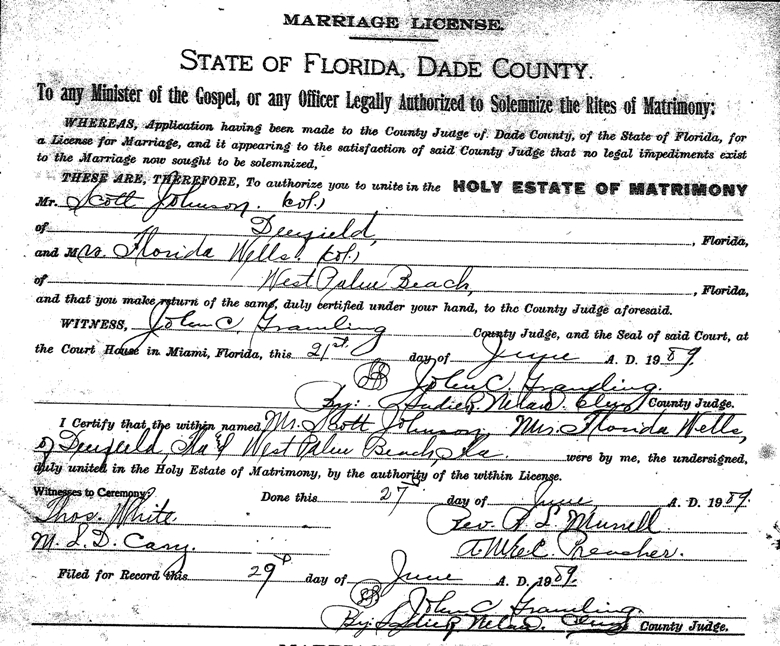 MARRIAGE LICENSE.
STATE OF FLORIDA, DADE COUNTY.
To any Minister of the Gospel, or any Officer Legally Authorized to Solemnize the Rites of Matrimony:
WHEREAS, Application having been made to the County Judge of Dade County, of the State of Florida, for
a License for Marriage, and it appearing to the satisfaction of said County Judge that no legal impediments exist
to the Marriage now sought to be solemnized,
THESE ARE, THEREFORE, To authorize you to unite in the HOLY ESTATE OF MATRIMONY
Mr. Scott Johnson. (col.)
of Deerfield, , Florida,
and Mrs. Florida Wells. (col.)
of West Palm Beach, , Florida,
and that you make return of the same, duly certified under your hand, to the County Judge aforesaid.
WITNESS, John C. Gramling County Judge, and the Seal of said Court, at
the Court House in Miami, Florida, this 21st. day of June A. D. 1909.
John C. Gramling.
By: Clerk County Judge.
I Certify that the within named Mr. Scott Johnson, Mrs. Florida Wells,
of Deerfield, Fla & West Palm Beach, Fla. were by me, the undersigned,
duly united in the Holy Estate of Matrimony, by the authority of the within License.
Witnesses to Ceremony: Done this 27 day of June A. D. 1909.
Thos. White. Rev.
M. L. D. Cary. Preacher.
Filed for Record this 29 day of June A. D. 1909.
John C. Gramling.
By: County Judge.